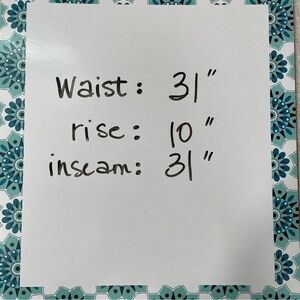 Waist: 31"
rise: 10"
inseam: 31"